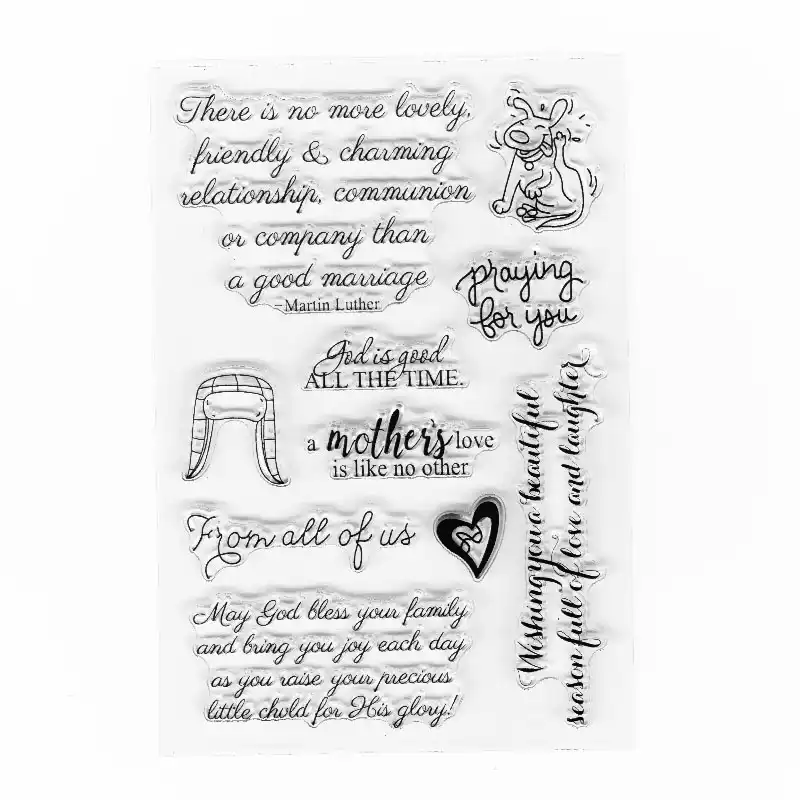 There is no more lovely,
friendly & charming
relationship, communion
or company than
a good marriage
-Martin Luther
praying
for you
God is good
ALL THE TIME.
a mother's love
is like no other
From all of us
Wishing you a beautiful
season full of love and laughter
May God bless your family
and bring you joy each day
as you raise your precious
little child for His glory!